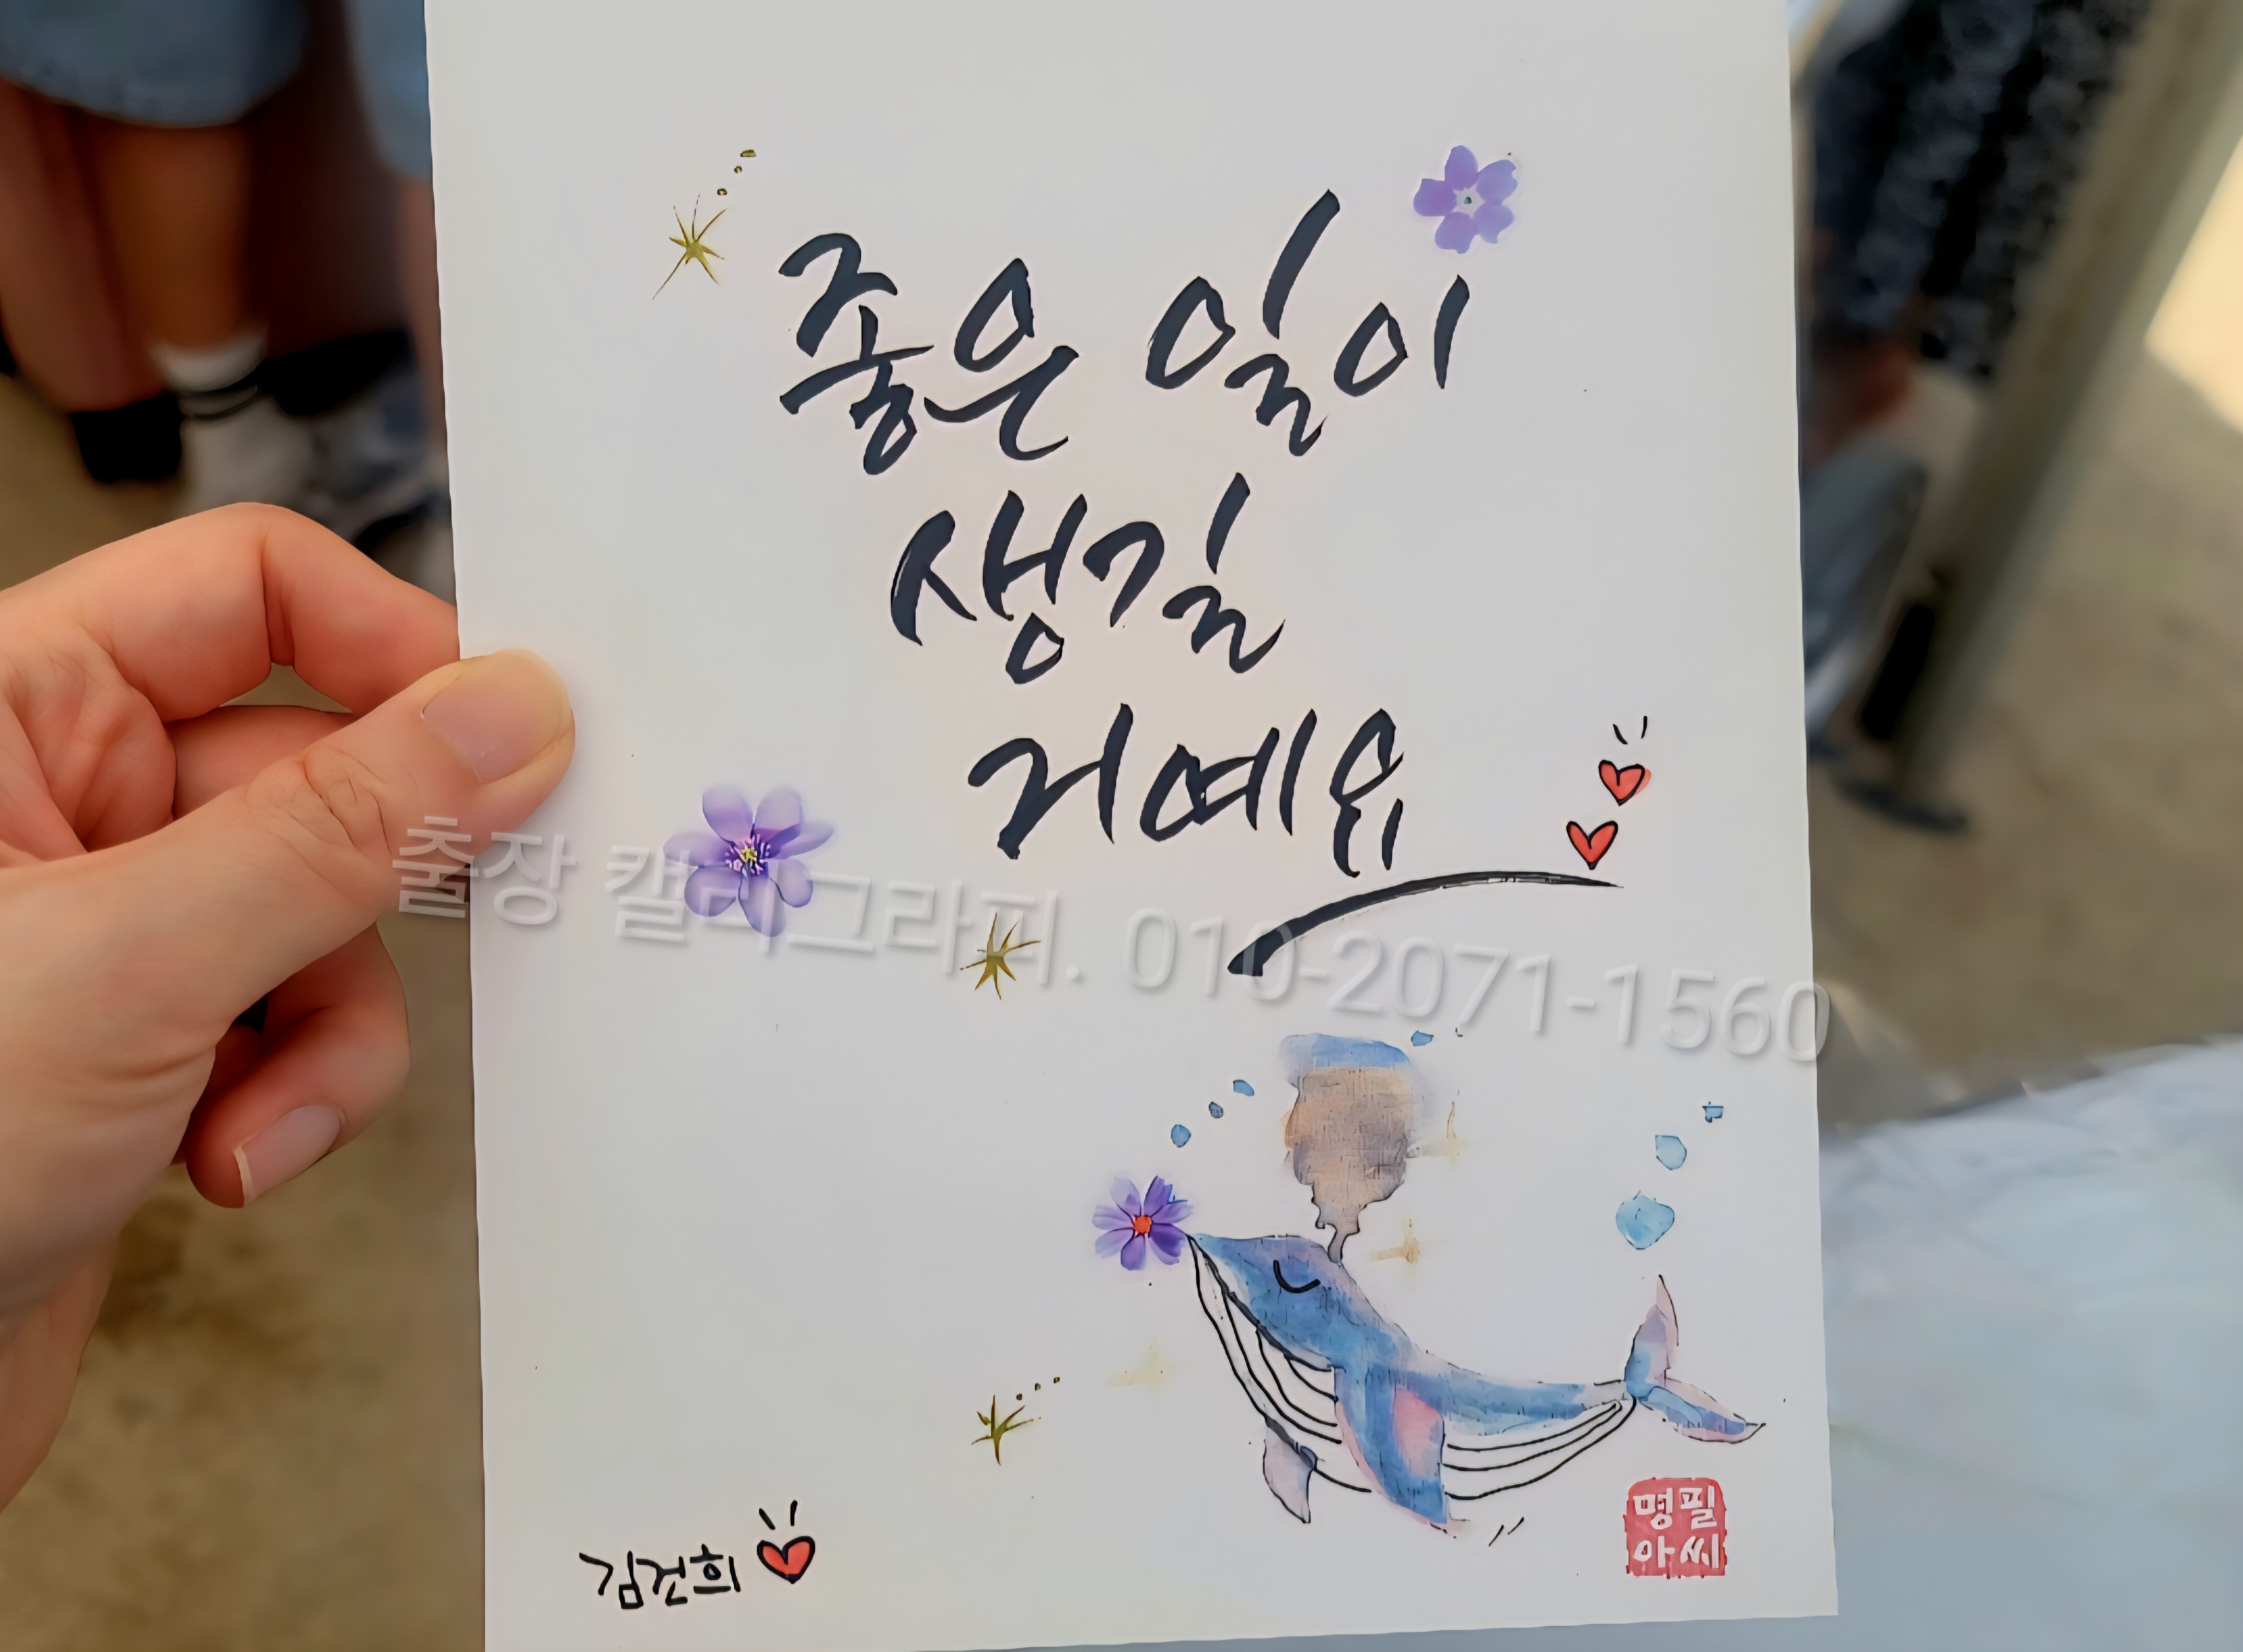 좋은 일이
생길
거예요
출장 캘리그라피. 010-2071-1560
김건희
명필
아씨